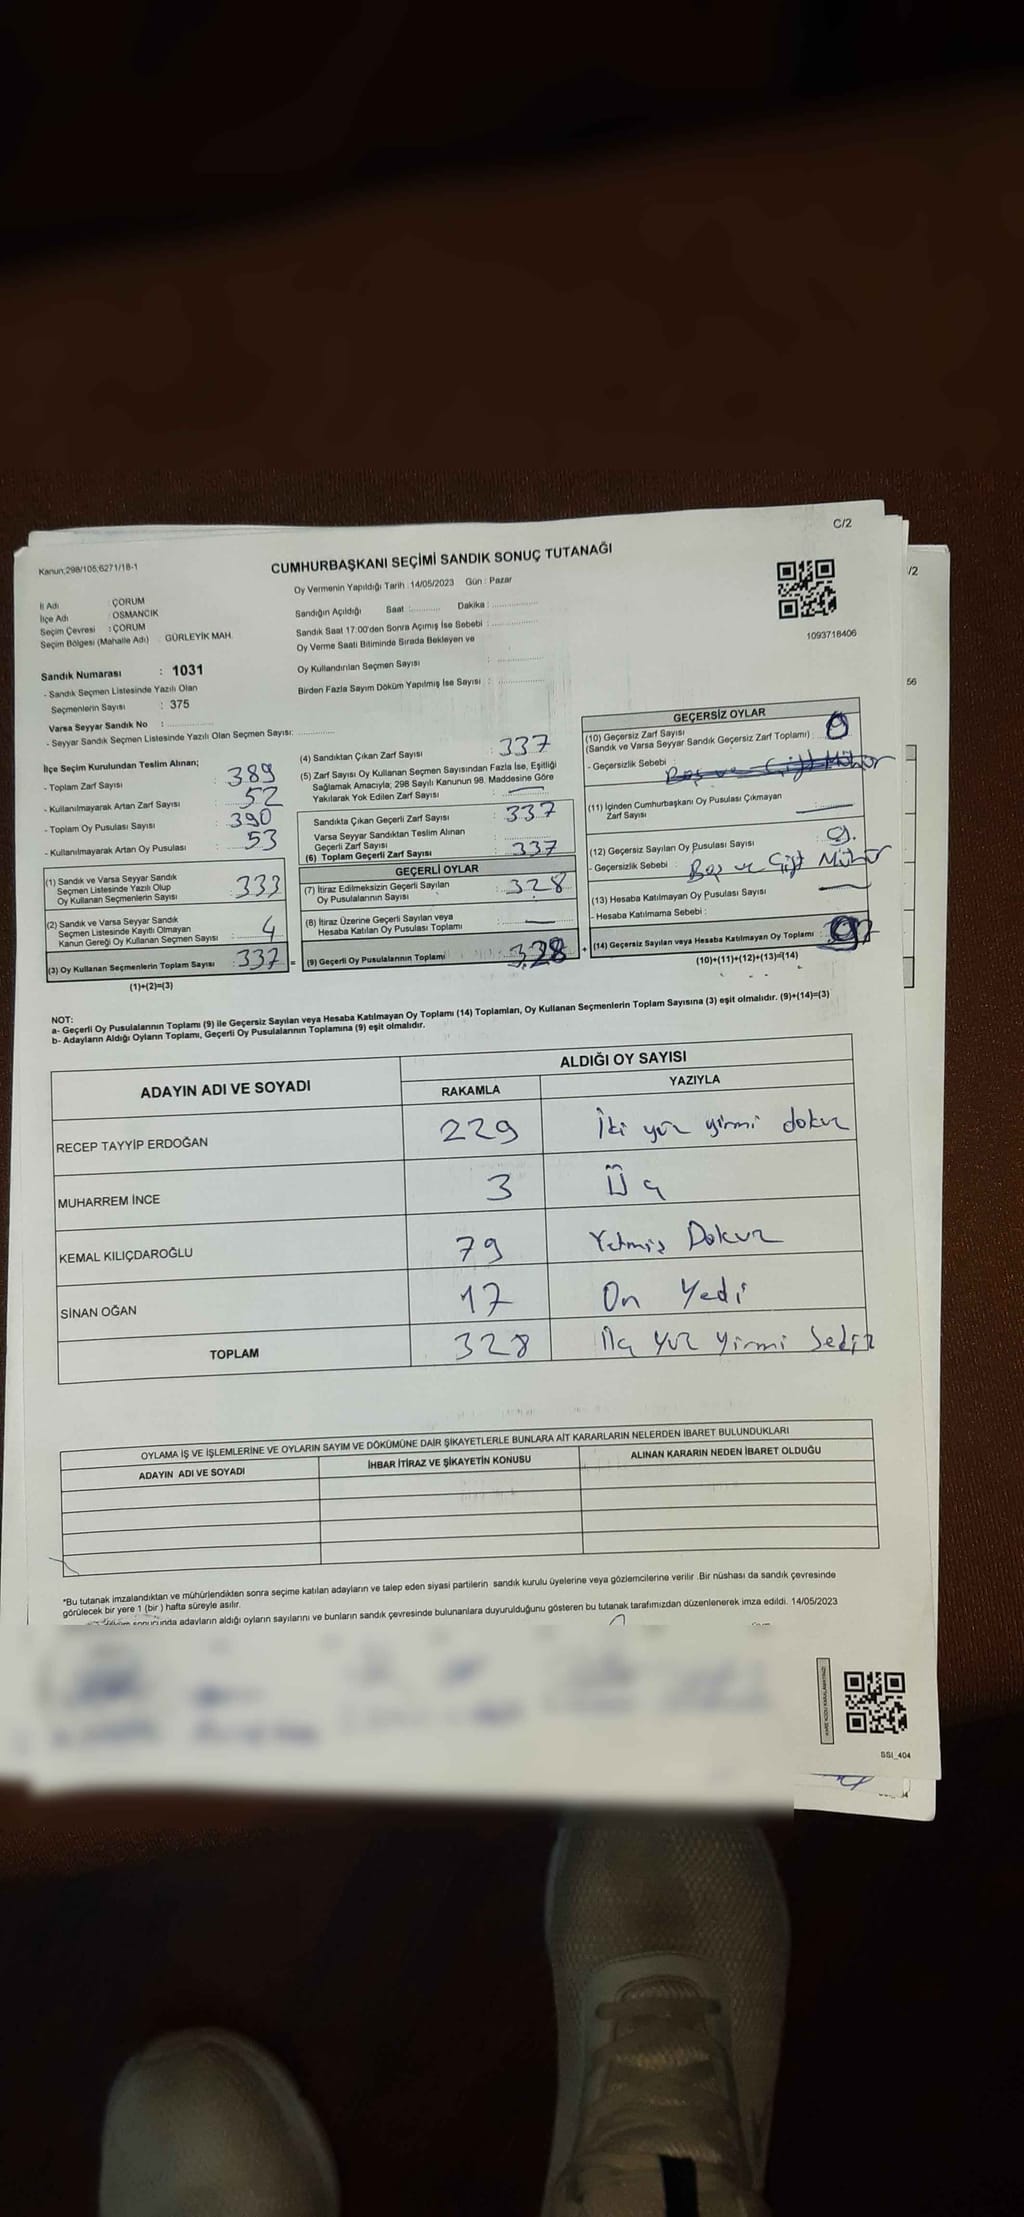 C/2
Kanun:298/105,6271/18-1
CUMHURBAŞKANI SEÇİMİ SANDIK SONUÇ TUTANAĞI
Oy Vermenin Yapıldığı Tarih : 14/05/2023 Gün : Pazar
İl Adı : ÇORUM
İlçe Adı : OSMANCIK
Seçim Çevresi : ÇORUM
Seçim Bölgesi (Mahalle Adı) : GÜRLEYİK MAH.
Sandık Numarası : 1031
- Sandık Seçmen Listesinde Yazılı Olan
Seçmenlerin Sayısı : 375
Varsa Seyyar Sandık No :
- Seyyar Sandık Seçmen Listesinde Yazılı Olan Seçmen Sayısı:
Sandığın Açıldığı Saat : Dakika :
Sandık Saat 17:00'den Sonra Açımış İse Sebebi :
Oy Verme Saati Bitiminde Sırada Bekleyen ve
Oy Kullandırılan Seçmen Sayısı :
Birden Fazla Sayım Döküm Yapılmış İse Sayısı :
1093718406
/2
56
İlçe Seçim Kurulundan Teslim Alınan;
- Toplam Zarf Sayısı : 389
- Kullanılmayarak Artan Zarf Sayısı : 52
- Toplam Oy Pusulası Sayısı : 390
- Kullanılmayarak Artan Oy Pusulası : 53
(1) Sandık ve Varsa Seyyar Sandık
Seçmen Listesinde Yazılı Olup
Oy Kullanan Seçmenlerin Sayısı : 333
(2) Sandık ve Varsa Seyyar Sandık
Seçmen Listesinde Kayıtlı Olmayan
Kanun Gereği Oy Kullanan Seçmen Sayısı : 4
(3) Oy Kullanan Seçmenlerin Toplam Sayısı : 337 =
(1)+(2)=(3)
(4) Sandıktan Çıkan Zarf Sayısı : 337
(5) Zarf Sayısı Oy Kullanan Seçmen Sayısından Fazla İse, Eşitliği
Sağlamak Amacıyla; 298 Sayılı Kanunun 98. Maddesine Göre
Yakılarak Yok Edilen Zarf Sayısı : —
Sandıkta Çıkan Geçerli Zarf Sayısı : 337
Varsa Seyyar Sandıktan Teslim Alınan
Geçerli Zarf Sayısı :
(6) Toplam Geçerli Zarf Sayısı : 337
GEÇERLİ OYLAR
(7) İtiraz Edilmeksizin Geçerli Sayılan
Oy Pusulalarının Sayısı : 328
(8) İtiraz Üzerine Geçerli Sayılan veya
Hesaba Katılan Oy Pusulası Toplamı : —
(9) Geçerli Oy Pusulalarının Toplamı : 328 +
GEÇERSİZ OYLAR
(10) Geçersiz Zarf Sayısı
(Sandık ve Varsa Seyyar Sandık Geçersiz Zarf Toplamı) : 0
- Geçersizlik Sebebi : Boş ve Çift Mühür
(11) İçinden Cumhurbaşkanı Oy Pusulası Çıkmayan
Zarf Sayısı : —
(12) Geçersiz Sayılan Oy Pusulası Sayısı : 9.
- Geçersizlik Sebebi : Boş ve Çift Mühür
(13) Hesaba Katılmayan Oy Pusulası Sayısı : —
- Hesaba Katılmama Sebebi :
(14) Geçersiz Sayılan veya Hesaba Katılmayan Oy Toplamı :
(10)+(11)+(12)+(13)=(14)
NOT:
a- Geçerli Oy Pusulalarının Toplamı (9) ile Geçersiz Sayılan veya Hesaba Katılmayan Oy Toplamı (14) Toplamları, Oy Kullanan Seçmenlerin Toplam Sayısına (3) eşit olmalıdır. (9)+(14)=(3)
b- Adayların Aldığı Oyların Toplamı, Geçerli Oy Pusulalarının Toplamına (9) eşit olmalıdır.
ADAYIN ADI VE SOYADI ALDIĞI OY SAYISI
RAKAMLA YAZIYLA
RECEP TAYYİP ERDOĞAN 229 İki yüz yirmi dokuz
MUHARREM İNCE 3 Üç
KEMAL KILIÇDAROĞLU 79 Yetmiş Dokuz
SİNAN OĞAN 17 On Yedi
TOPLAM 328 Üç yüz yirmi Sekiz
OYLAMA İŞ VE İŞLEMLERİNE VE OYLARIN SAYIM VE DÖKÜMÜNE DAİR ŞİKAYETLERLE BUNLARA AİT KARARLARIN NELERDEN İBARET BULUNDUKLARI
ADAYIN ADI VE SOYADI İHBAR İTİRAZ VE ŞİKAYETİN KONUSU ALINAN KARARIN NEDEN İBARET OLDUĞU
*Bu tutanak imzalandıktan ve mühürlendikten sonra seçime katılan adayların ve talep eden siyasi partilerin sandık kurulu üyelerine veya gözlemcilerine verilir .Bir nüshası da sandık çevresinde
görülecek bir yere 1 (bir ) hafta süreyle asılır.
sonucunda adayların aldığı oyların sayılarını ve bunların sandık çevresinde bulunanlara duyurulduğunu gösteren bu tutanak tarafımızdan düzenlenerek imza edildi. 14/05/2023
SSI_404